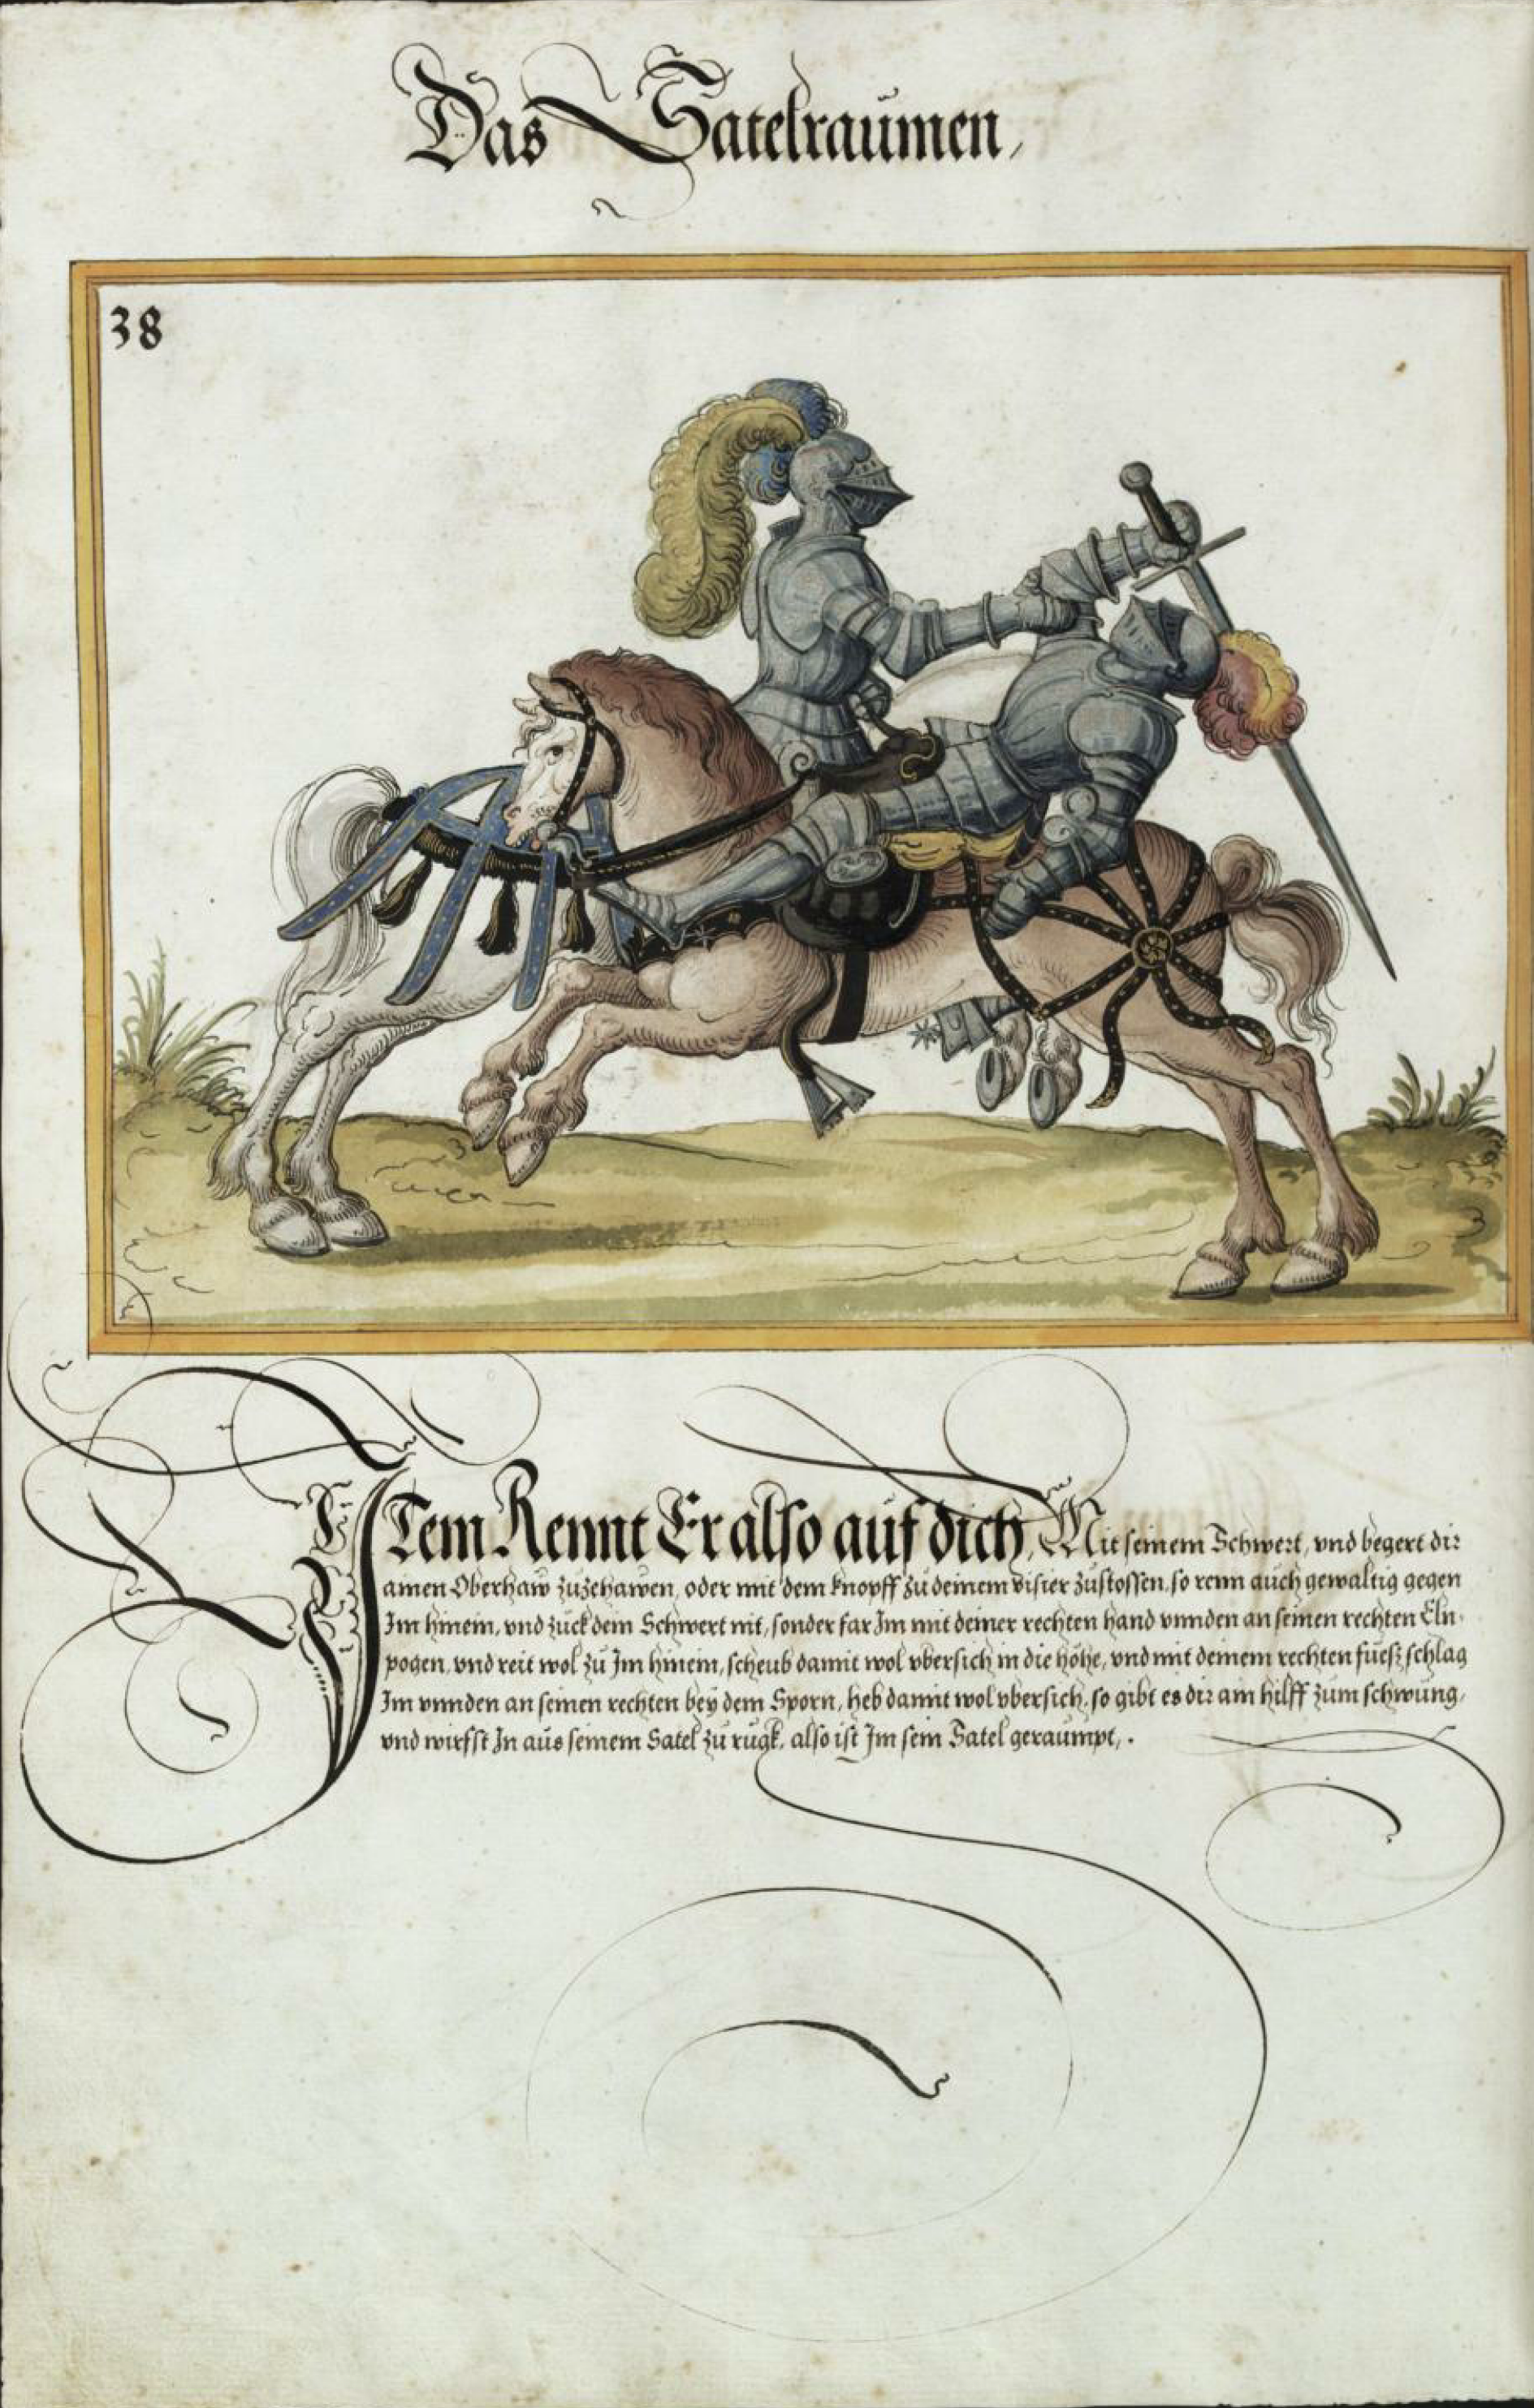 Das Satelraumen,
38
ITem Rennt Er also auf dich, Mit seinem Schwert, vnd begert dir
ainen Oberhaw zuzehawen, oder mit dem knopff zu deinem visier zustossen, so renn auch gewaltig gegen
Im hinein, vnd zuck dein Schwert nit, sonder far Im mit deiner rechten hand vnnden an seinen rechten Eln-
pogen, vnd reit wol zu Im hinein, scheub damit wol vbersich in die höhe, vnd mit deinem rechten fuesz schlag
Im vnnden an seinen rechten bey dem Sporn, heb damit wol vbersich, so gibt es dir ain hilff zum schwung,
vnd wirfst In aus seinem Satel zu rugk, also ist Im sein Satel geraumpt,.